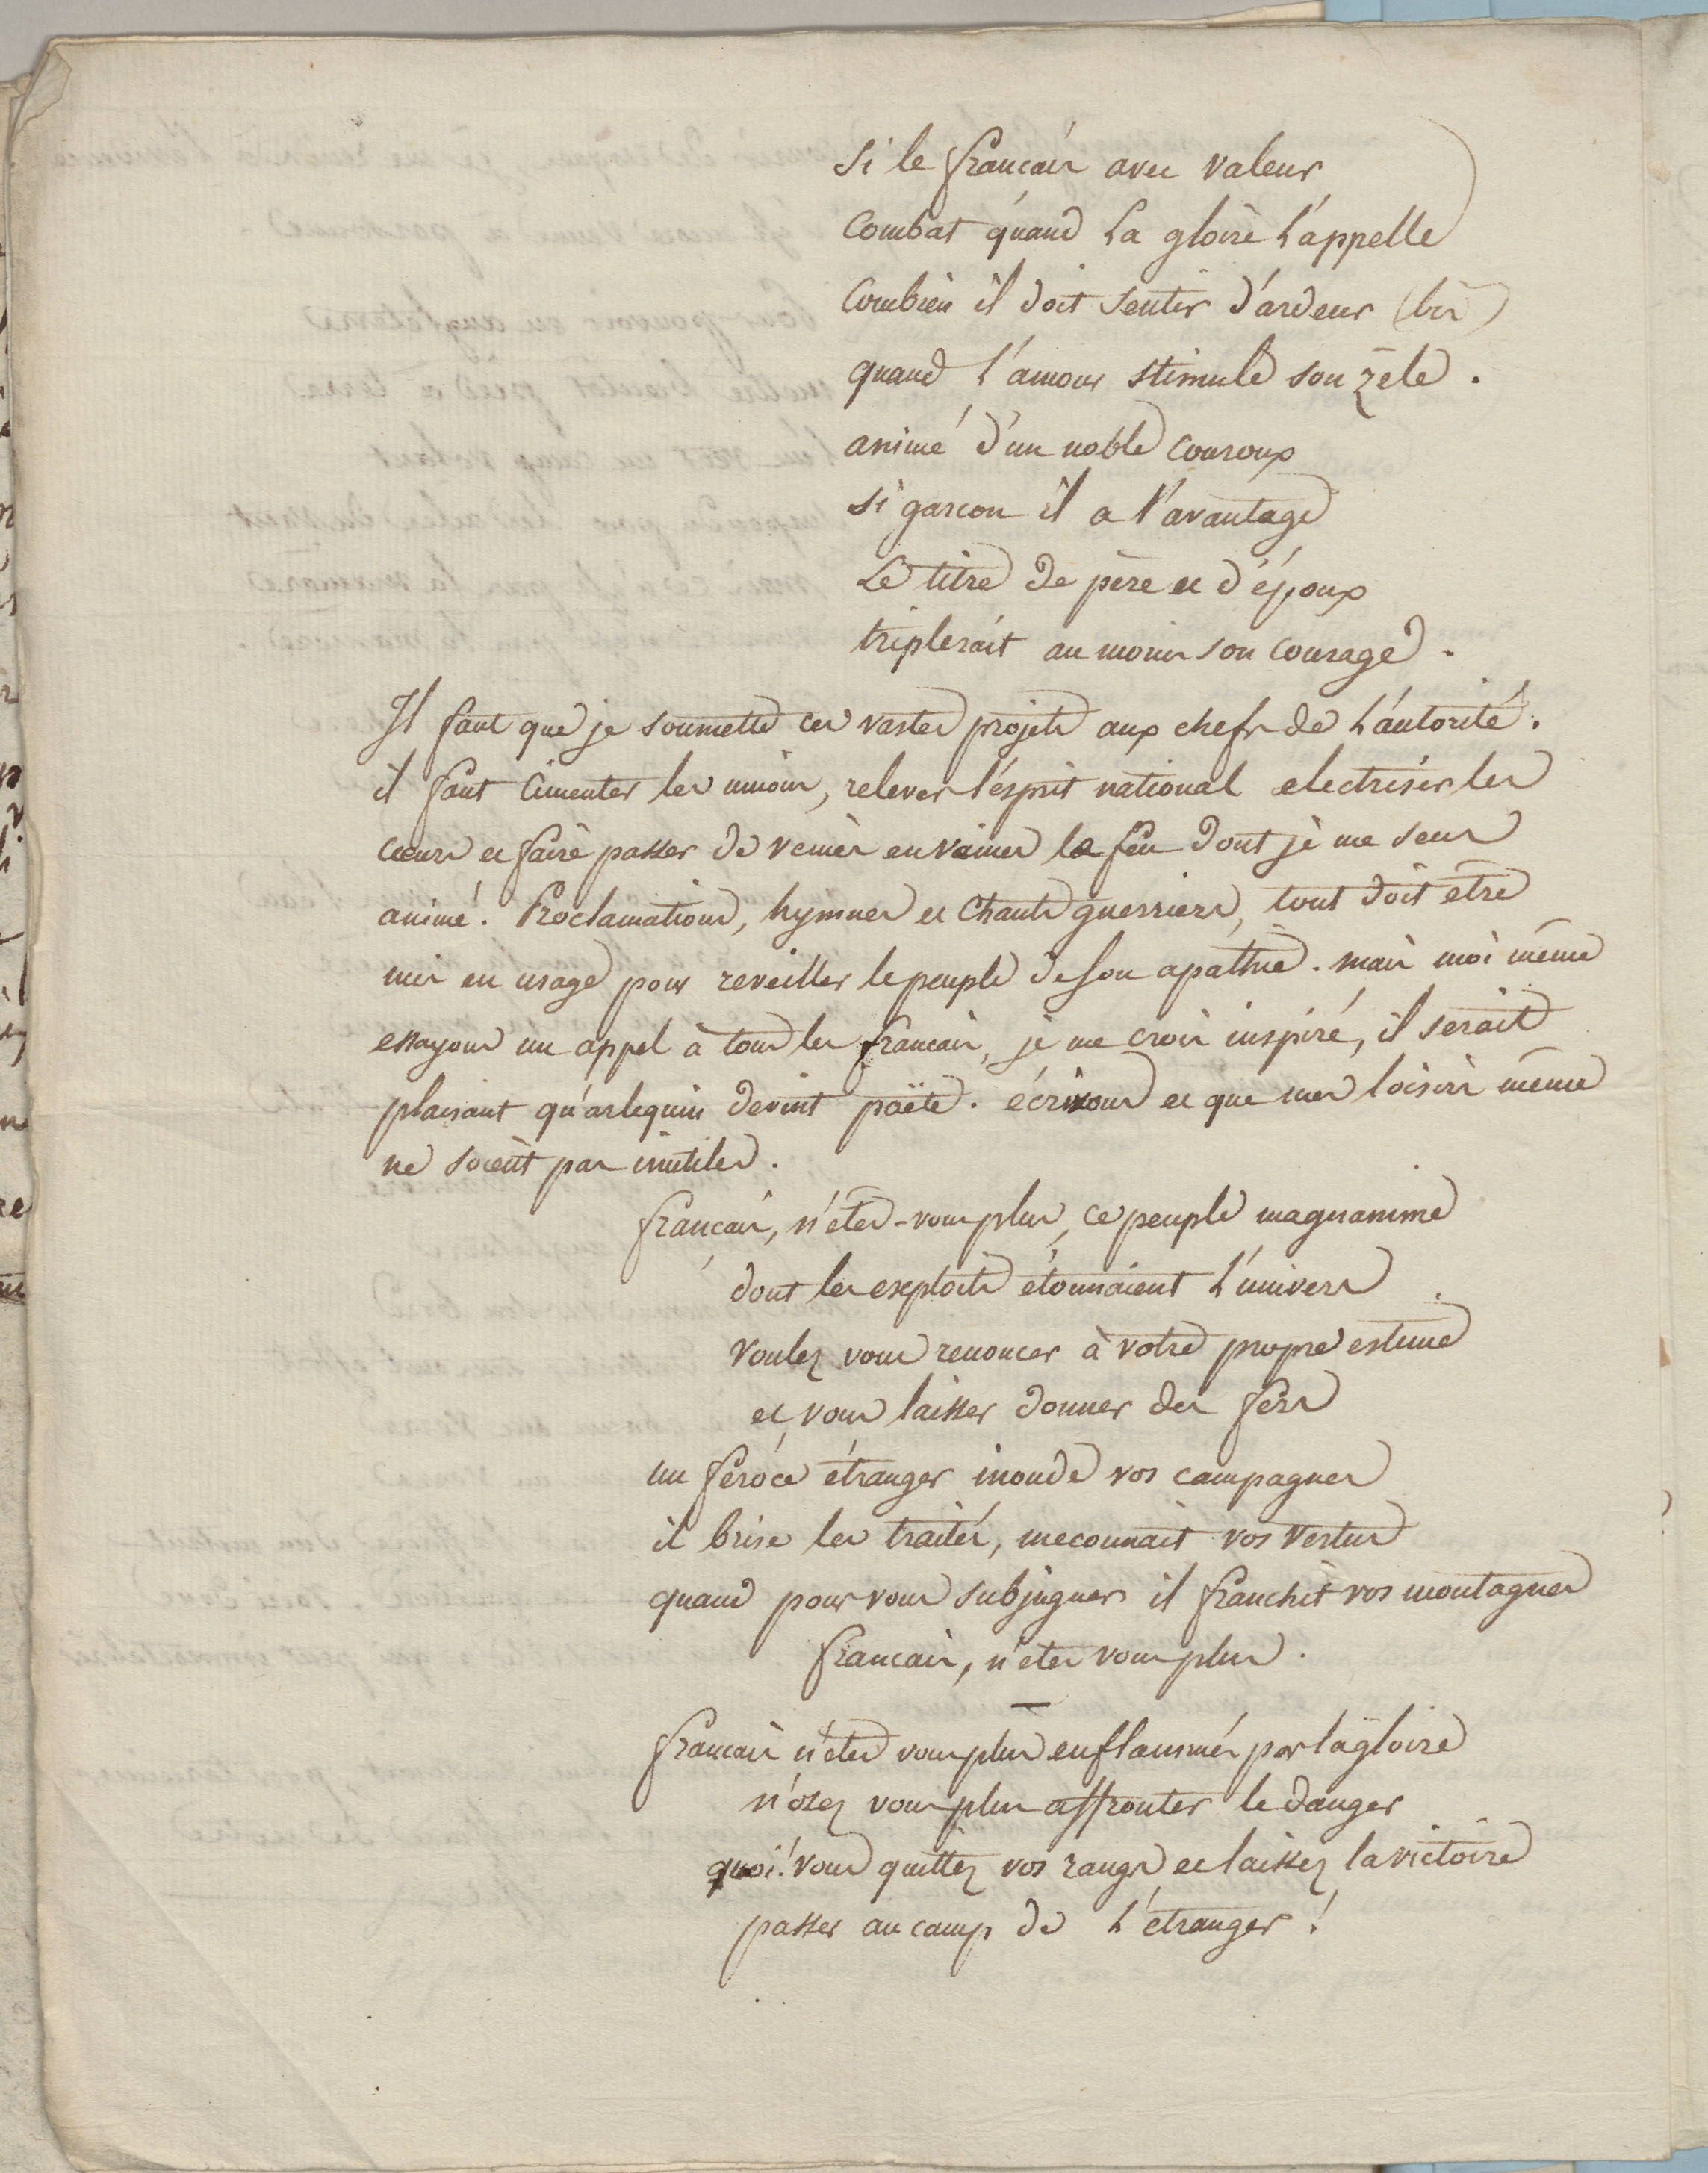 Si le francais avec valeur
Combat quand la gloire l'appelle
Combien il doit sentir d'ardeur (bis)
quand l'amour stimule son zèle.
animé d'un noble couroux
si garcon il a l'avantage
Le titre de père et d'époux
triplerait au moins son courage.
Il faut que je soumette ces vastes projets aux chefs de l'autorité.
il faut cimenter les unions, relever l'esprit national electriser les
cœurs et faire passer de veines en veines le feu dont je me sens
animé. Proclamations, hymnes et chants guerriers, tout doit être
mis en usage pour reveiller le peuple de son apathie. mais moi même
essayons un appel à tous les francais, je me crois inspiré, il serait
plaisant qu'arlequin devint poëte. écrivons et que mes loisirs même
ne soient pas inutiles.
francais, n'étes-vous plus, ce peuple magnanime
dont les exploits étonnaient l'univers
voulez vous renoncer à votre propre estime
et vous laisser donner des fers
un féroce étranger inonde vos campagnes
il brise les traités, meconnait vos vertus
quand pour vous subjuguer il franchit vos montagnes
francais, n'etes vous plus.
francais n'étes vous plus enflammés par la gloire
n'osez vous plus affronter le danger
quoi! vous quittez vos rangs et laissez la victoire
passer au camp de l'étranger!